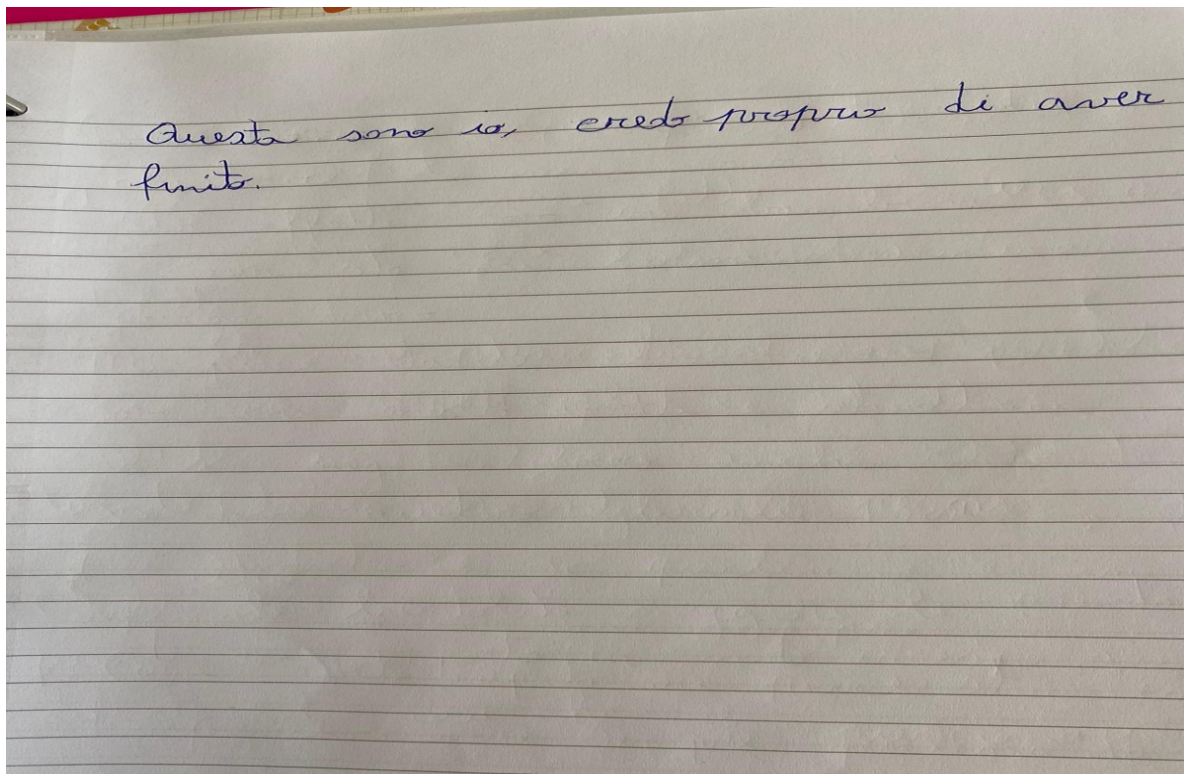 Questa sono io, credo proprio di aver
finito.